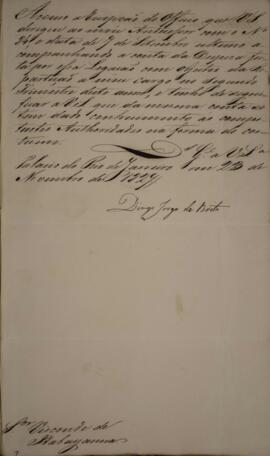 Accuso a recepção do Officio que V. S.
dirigio ao meu Antecessor com o Nº
24 e data de 5 de Setembro ultimo a
companhando a conta da Despeza fei
ta por essa Legação com objectos da Re
partição a meu cargo no segundo
Trimestre deste anno, e tenho de signi
ficar a V. S. que da mesma conta se
tem dado conhecimento as compe
tentes Authoridades na forma do cos
tume.
Ds. Ge. a V. Sa
Palacio do Rio de Janeiro em 23 de
Novembro de 1827
Diogo Jorge de Brito
Snr. Visconde de
Itabayanna